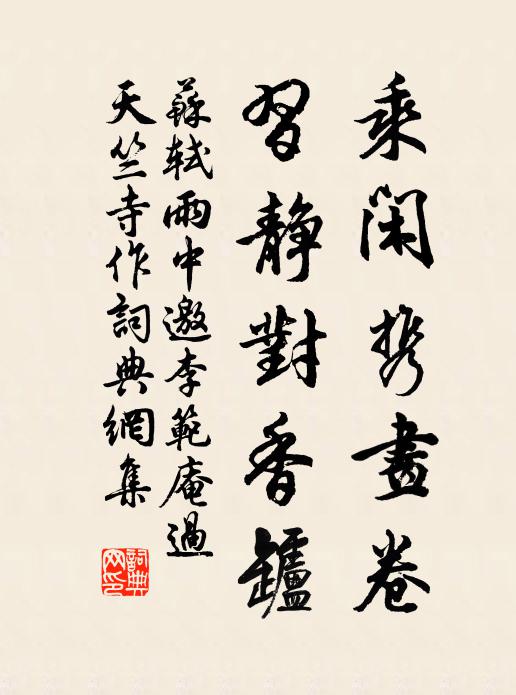 乘閑携畫卷
習靜對香鑪
蘇軾雨中邀李範庵過
天竺寺作詞典網集
詞典網印